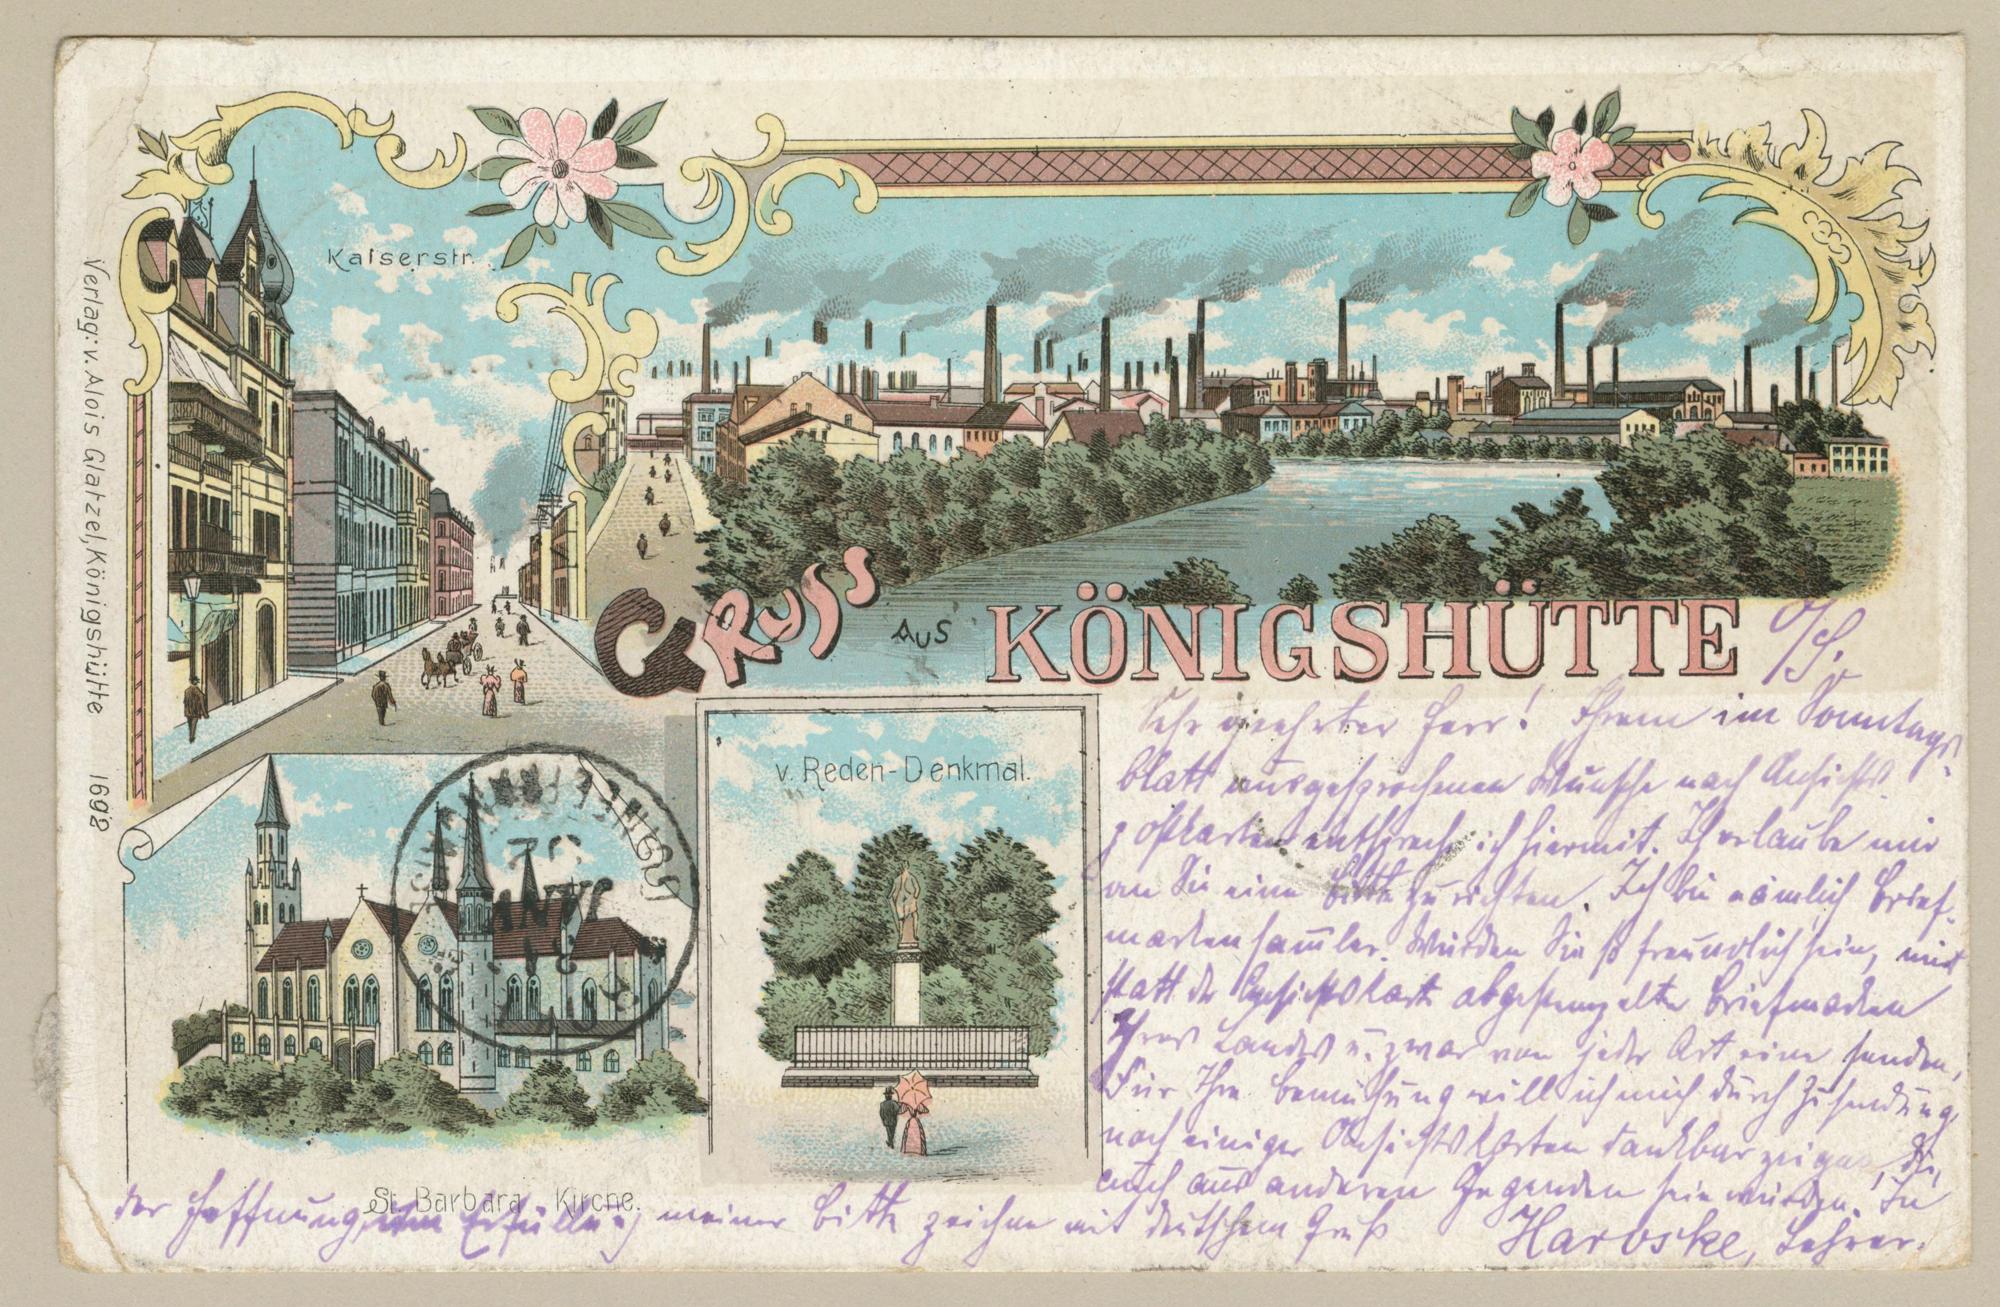 Kaiserstr.
GRUSS AUS KÖNIGSHÜTTE O/S.
Verlag: v. Alois Glatzel, Königshütte 1698
v. Reden-Denkmal.
St. Barbara Kirche.
Sehr geehrter Herr! Ihrem im Sonntags-
blatt ausgesprochenen Wunsche nach Ansichts-
postkarten entspreche ich hiermit. Ich erlaube mir
an Sie eine Bitte zu richten. Ich bin nämlich Brief-
markensammler. Würden Sie so freundlich sein, mir
statt der Ansichtskarte abgestempelte Briefmarken
Ihres Landes u. zwar von jeder Art eine senden,
Für Ihre Bemühung will ich mich durch Zusendung
noch einiger Ansichtskarten dankbar zeigen, die
auch aus anderen Gegenden sein würden. In
der Hoffnung, Erfüllung meiner Bitte zeichne mit deutschem Gruß
Lehrer.